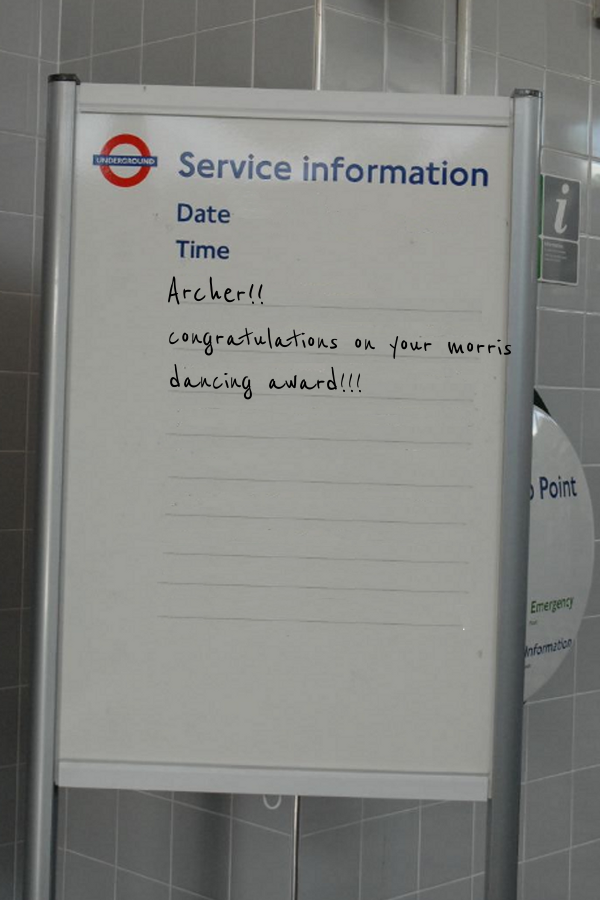 UNDERGROUND
Service information
Date
Time
Archer!!
congratulations on your morris
dancing award!!!
i
Point
Emergency
Information